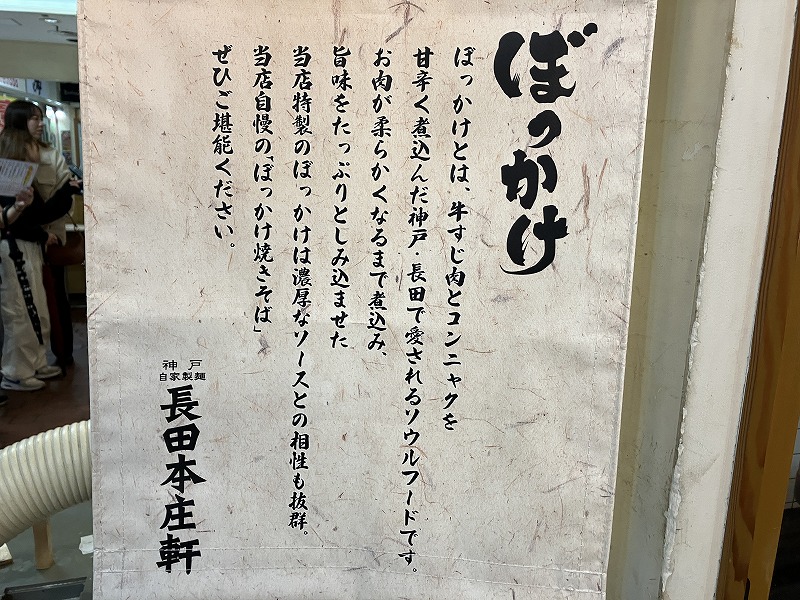 ぼっかけ
ぼっかけとは、牛すじ肉とコンニャクを
甘辛く煮込んだ神戸・長田で愛されるソウルフードです。
お肉が柔らかくなるまで煮込み、
旨味をたっぷりとしみ込ませた
当店特製のぼっかけは濃厚なソースとの相性も抜群。
当店自慢の「ぼっかけ焼きそば」
ぜひご堪能ください。
神戸
自家製麺
長田本庄軒